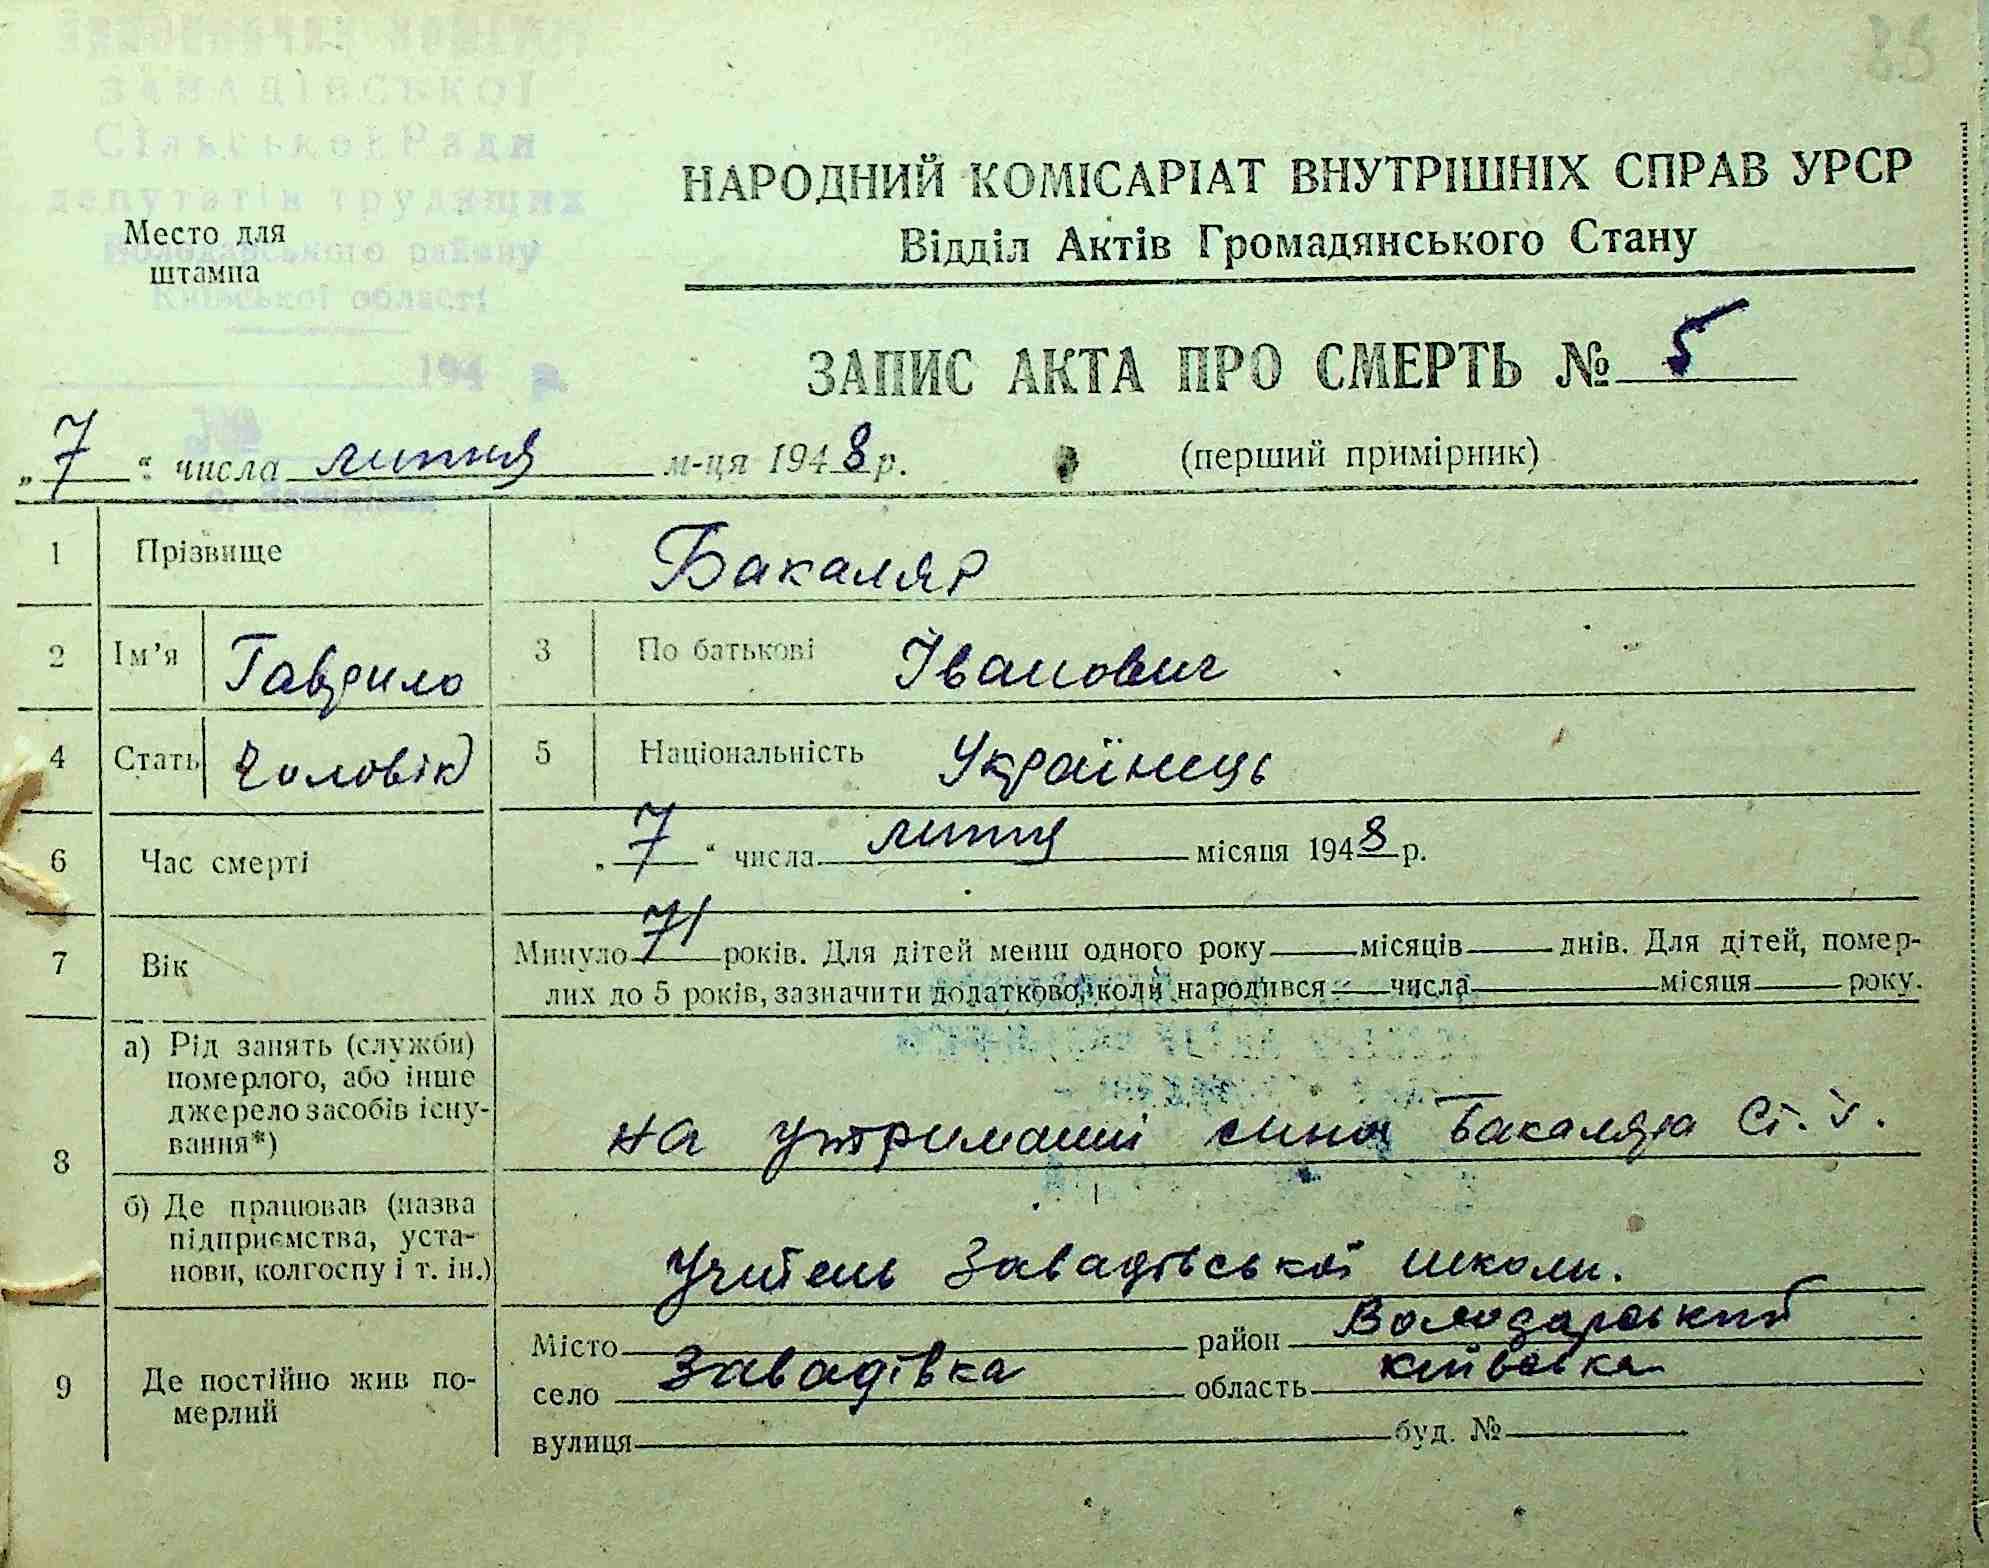 ЗАВАДІВСЬКОЇ
Сільської Ради
депутатів трудящих
Володарського району
Київської області
194 р.
Место для
штампа
НАРОДНИЙ КОМІСАРІАТ ВНУТРІШНІХ СПРАВ УРСР
Відділ Актів Громадянського Стану
ЗАПИС АКТА ПРО СМЕРТЬ № 5
„7“ числа липня м-ця 1948 р. (перший примірник)
1 Прізвище Бакаляр
2 Ім’я Гаврило 3 По батькові Іванович
4 Стать Чоловік 5 Національність Українець
6 Час смерті „7“ числа липня місяця 1948 р.
7 Вік Минуло 71 років. Для дітей менш одного року місяців днів. Для дітей, помер-
лих до 5 років, зазначити додатково, коли народився числа місяця року.
8 а) Рід занять (служби)
померлого, або інше
джерело засобів існу-
вання*)
на утриманні сина Бакаляра Ст. І.
б) Де працював (назва
підприємства, уста-
нови, колгоспу і т. ін.)
Учитель Завадівської школи.
9 Де постійно жив по-
мерлий
Місто район Володарський
село Завадівка область Київська
вулиця буд. №